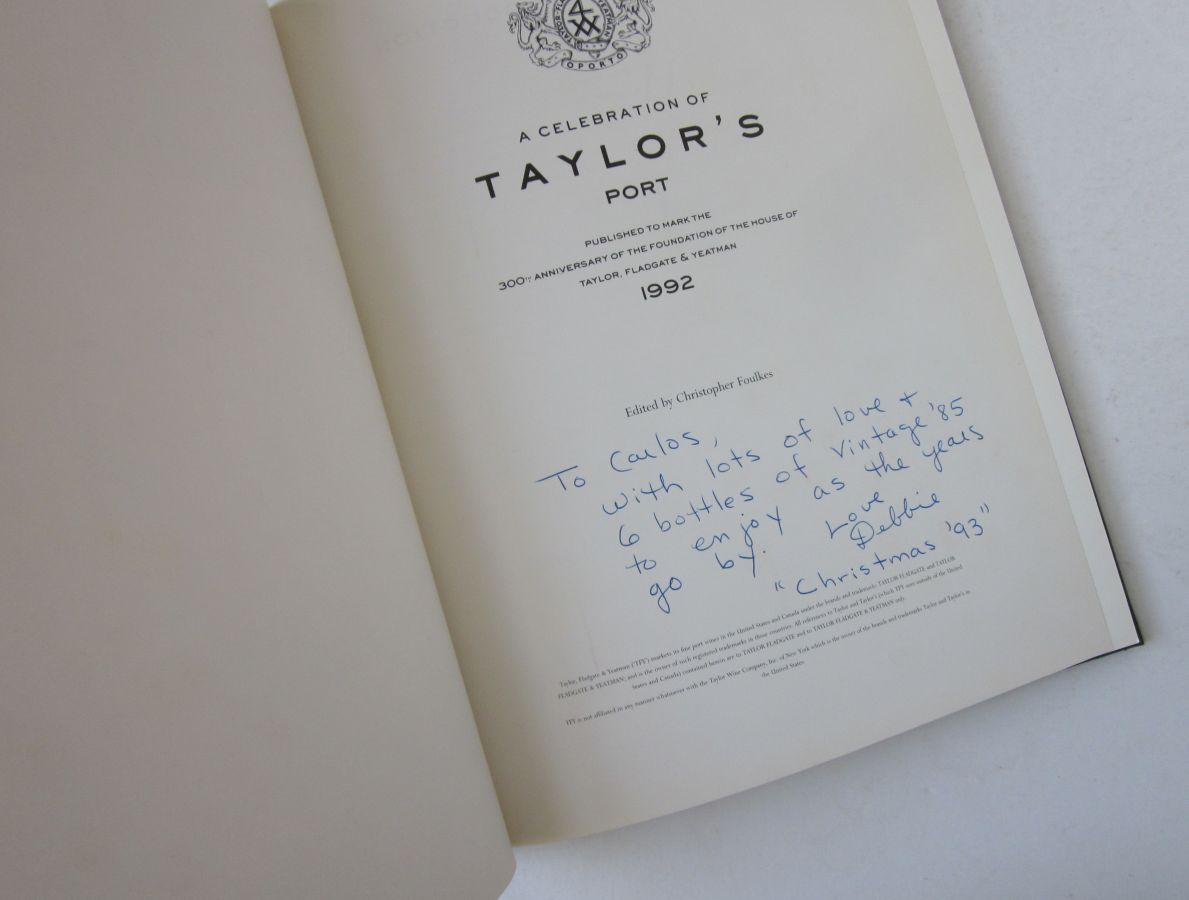 4
XX
OPORTO
A CELEBRATION OF
TAYLOR'S
PORT
PUBLISHED TO MARK THE
300TH ANNIVERSARY OF THE FOUNDATION OF THE HOUSE OF
TAYLOR, FLADGATE & YEATMAN
1992
Edited by Christopher Foulkes
To Carlos,
with lots of love +
6 bottles of Vintage '85
to enjoy as the years
go by. Love
Debbie
"Christmas '93"
Taylor, Fladgate & Yeatman ('TFY') markets its fine port wines in the United States and Canada under the brands and trademarks TAYLOR FLADGATE and TAYLOR
FLADGATE & YEATMAN; and is the owner of such registered trademarks in those countries. All references to Taylor and Taylor's (which TFY uses outside of the United
States and Canada) contained herein are to TAYLOR FLADGATE and to TAYLOR FLADGATE & YEATMAN only.
TFY is not affiliated in any manner whatsoever with the Taylor Wine Company, Inc. of New York which is the owner of the brands and trademarks Taylor and Taylor's in
the United States